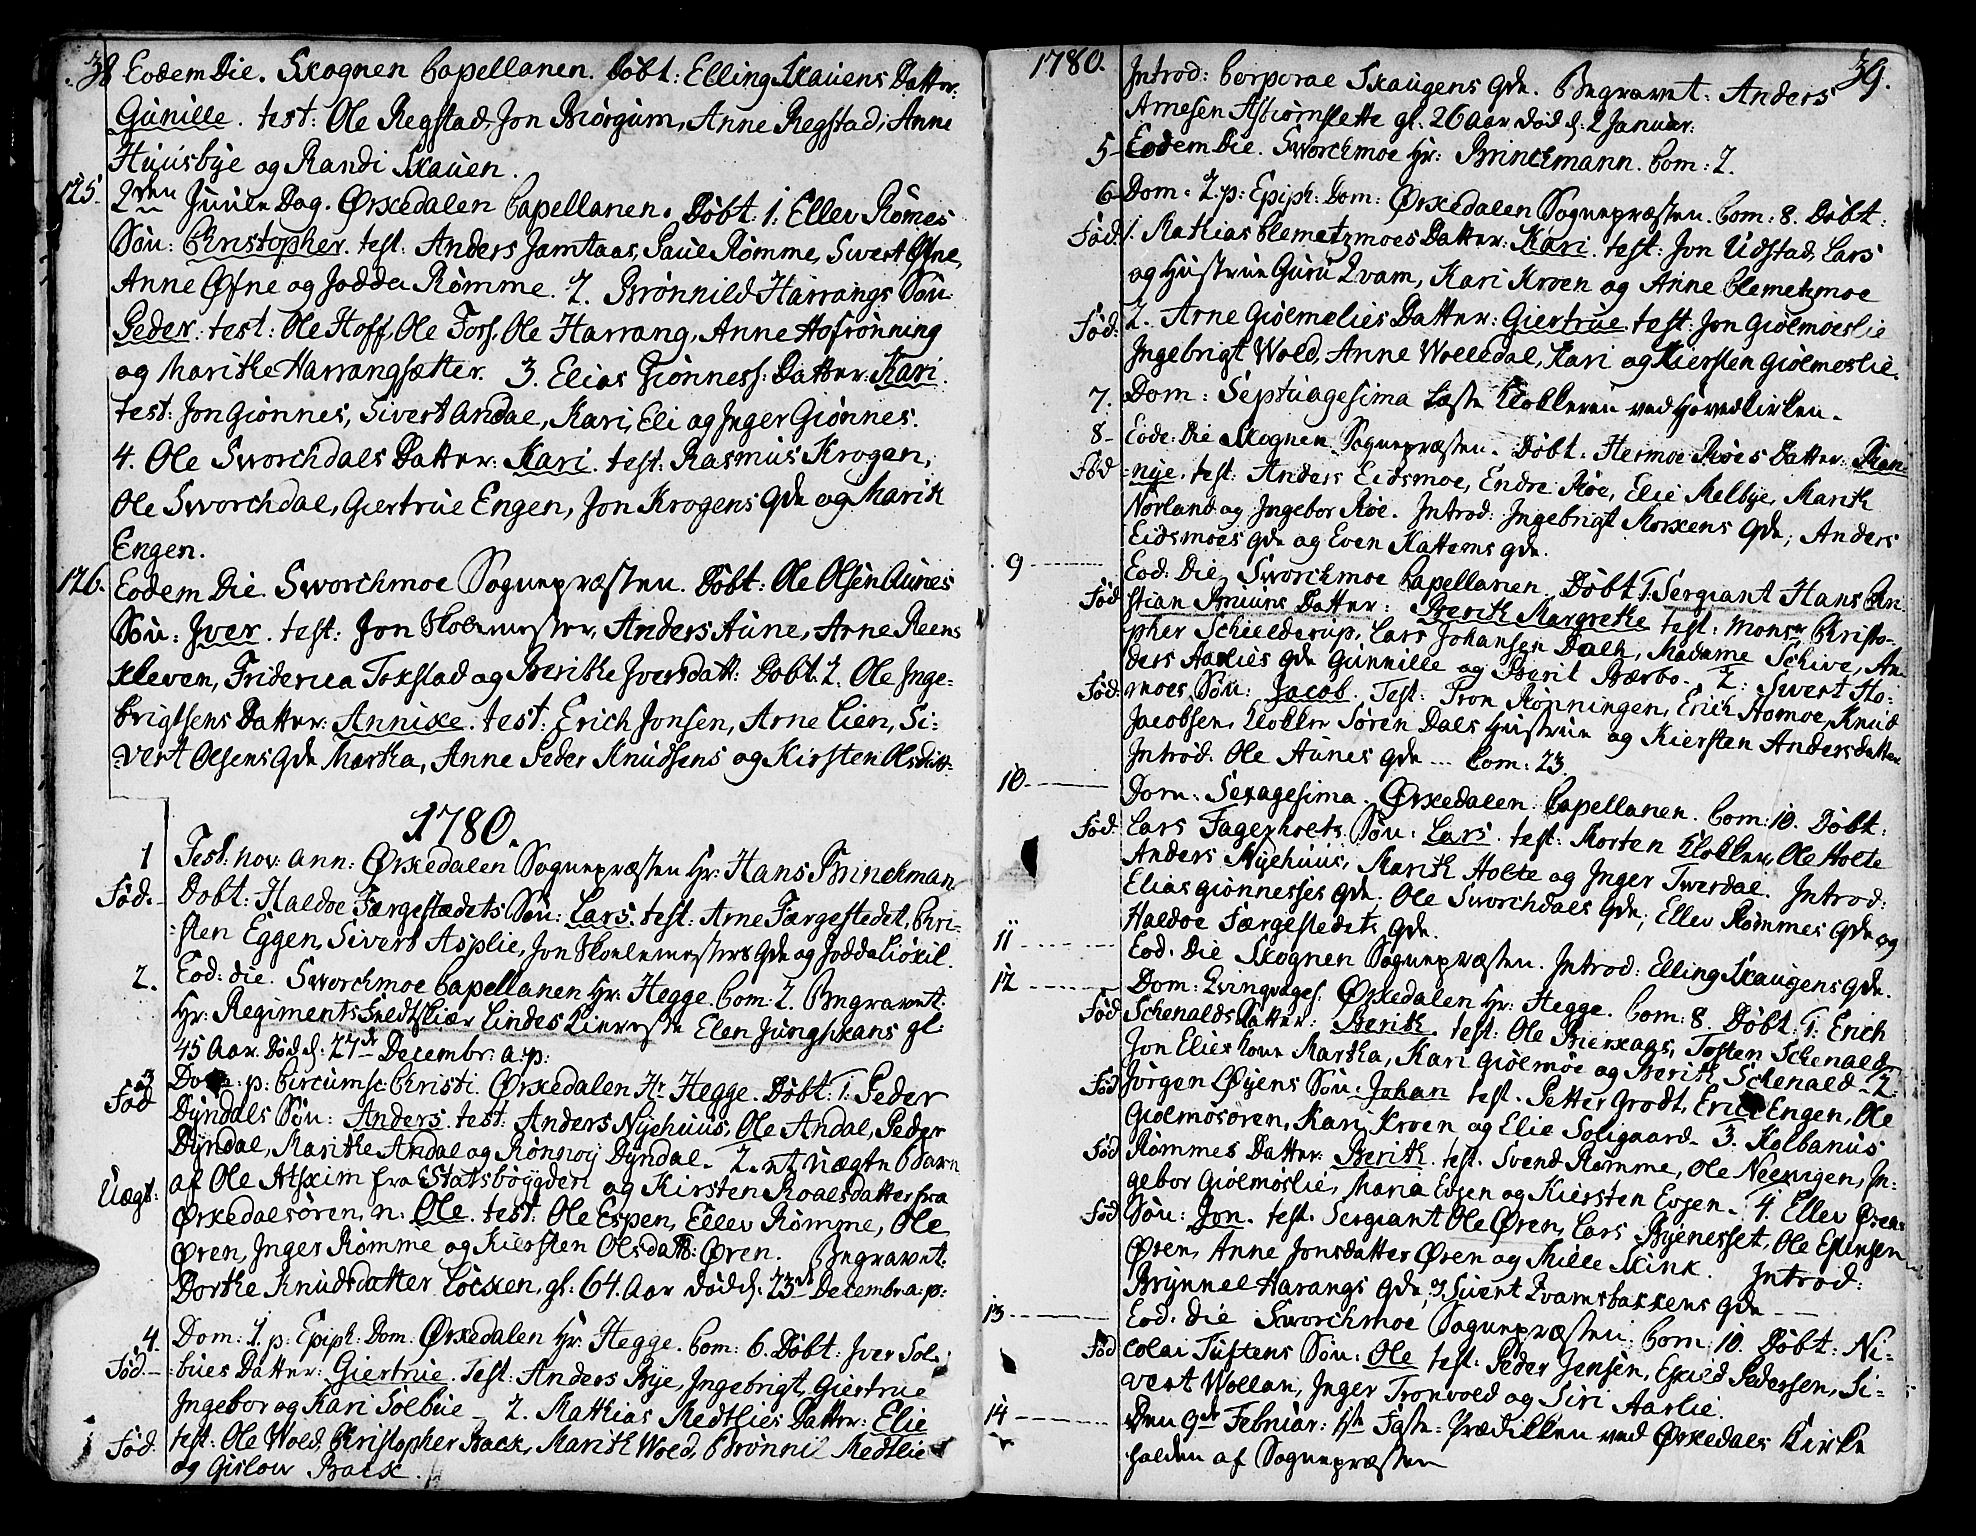 38 Eodem Die. Skognen Capellanen. Døbt: Elling Skauens Datter:
Gunille. test: Ole Regstad, Jon Biörgum, Anne Regstad, Anne
Huusbye og Randi Skauen.
125. 2den Juule Dag. Ørkedalen Capellanen. Døbt. 1. Ellev Römes
Sön: Christopher. test: Anders Jamtaas, Paul Römme, Sivert Øfne,
Anne Øfne og Jodda Römme. 2. Brönnild Harrangs Sön:
Peder. test: Ole Hoff, Ole Fors, Ole Harrang, Anne Hofrönning
og Marithe Harrangsætter. 3. Elias Giönness: Datter: Kari.
test: Jon Giönnes, Sivert Andal, Kari, Eli og Inger Giönnes.
4. Ole Sworchdals Datter: Kari. test: Rasmus Krogen,
Ole Sworchdal, Giertrue Engen, Jon Krogens Qde og Marith
Engen.
126. Eodem Die. Sworchmoe Sognepræsten. Döbt: Ole Olsen Aunes
Sön: Iver. test: Jon Skolemester, Anders Aune, Arne Reens
kleven, Friderica Tokstad og Berithe Iversdatt: Döbt. 2. Ole Inge-
brigtsens Datter: Annike. test: Erich Jonsen, Arne Lien, Si-
vert Olsens Qde Martha, Anne Peder Knudsens og Kirsten Olsdatt:
1780.
1 Fest: nov: ann: Ørkedalen Sognepræsten Hr: Hans Brinchman
Fød. Döbt: Haldoe Færgestædets Sön: Lars. test: Arne Færgestedet, Chri-
sten Eggen, Sivert Asplie, Jon Skolemesters Qde og Jodda Liökil.
2. Eod: die. Sworchmoe Capellanen Hr: Hegge. Com: 2. Begravet:
Hr: Regiments Feldtskiær Lindes Kiereste Elen Jungskans gl:
45 Aar. Död d: 27de Decembr: a: p:
3 Dom: p: Circumsc: Christi. Ørkedalen Hr Hegge. Döbt: 1. Peder
Fød Dyndals Sön: Anders. test: Anders Nyehuus, Ole Andal, Peder
Dyndal, Marithe Andal og Rönnoy Dyndal. 2. et uægte Barn
Uægt: af Ole Atskim fra Statsböygden og Kirsten Roaldsdatter fra
Ørkedalsören, n: Ole. test: Ole Espen, Ellev Römme, Ole
Ören, Inger Römme og Kiersten Olsdatt: Ören. Begravet:
Dorthe Knudsdatter Löcken, gl: 64. Aar död d: 23de Decembr: a: p:
4. Dom: 1. p: Epiph: Dom: Ørkedalen Hr: Hegge. Com: 6. Döbt: Iver Sol-
Fød. bues Datter: Giertrue. Test: Anders Bye, Ingebrigt, Giertrue
Ingebor og Kari Solbue 2. Mathias Medtlies Datter: Elie
Fød. test: Ole Wold, Christopher Back, Marith Wold, Brönnil Medtlie
og Gislou Back.
1780. 39.
Introd: Corporae Skaugens Qde. Begravet: Anders
Arnesen Astiörnslette gl: 26 Aar död d: 2 Januar:
5 Eodem Die. Sworchmoe Hr: Brinchmann. Com: 2.
6 Dom: 2. p: Epiph: Dom: Ørkedalen Sognepræsten. Com: 8. Döbt:
Fød. 1. Mathias Clemetzmoes Datter: Kari. test: Jon Udstad, Lars
og Hustrue Guru Qvam, Kari Kroen og Anne Clemetzmoe
Fød. 2. Arne Giölmelies Datter: Giertrue test: Jon Giölmoeslie
Ingebrigt Wold, Anne Wolldal, Kari og Kiersten Giölmoslie.
7. Dom: Septuagesima læste Klokkeren ved Hovedkirken.
8 Eode: Die Skognen Sognepræsten. Döbt. Hermoe Röes Datter: Ran-
Fød nye. test: Anders Eidsmoe, Endre Röe, Elie Melbye, Marith
Norland og Ingebor Röe. Introd: Ingebrigt Morkens Qde, Anders
Eidsmoes Qde og Even Kattems Qde.
9 Eod: Die Sworchmoe Capellanen. Döbt 1. Sergiant Hans Chri-
Fød stian Bruuns Datter: Berith Margrethe test: Monsr Christo-
pher Schielderup, Lars Johansen Dall, Madame Schive, An-
ders Aarlies Qde Gunnille og Berit Bærbo. 2: Sivert Ho-
Fød. moes Sön: Jacob. Test: Tron Rönningen, Erich Homoe, Knud
Jacobsen, Klokker Sören Dals Hustrue og Kiersten Andersdatter
Introd. Ole Aunes Qde Com: 23.
10 Dom: Sexagesima. Ørkedalen Capellanen. Com: 10. Döbt:
Fød. Lars Fagerholts Sön: Lars. test: Morten Klokker, Ole Holte
Anders Nyehuus, Marith Holte og Inger Twerdal. Introd:
Elias Giönnesses Qde, Ole Sworchdals Qde, Ellev Römmes Qde og
Haldoe Færgestedets Qde.
11 Eod. Die Skognen Sognepræsten. Introd: Elling Skaugens Qde.
12 Dom: Qvinqvages. Ørkedalen Hr: Hegge. Com: 8. Döbt: 1. Erich
Fød Schenalds Datter: Berith test: Ole Bierkags, Tosten Schenald
Jon Elieshoun Martha, Kari Giölmoe og Berith Schenald 2.
Fød Jörgen Löyens Sön: Johan test. Petter Grodt, Erich Engen, Ole
Giölmosören, Kari Kroen og Elie Soligaard. 3. Kolbanus
Fød Römmes Datter: Berith. test. Svend Römme, Ole Neevigen, In-
gebor Giölmoslie, Maria Evjen og Kiersten Evjen. 4 Ellev Ørens
Fød Sön: Jon. test. Sergiant Ole Øren, Lars Byenesset, Ole Espensen
Øren, Anne Jonsdatter Øren og Mille Kink. Introd:
Brynnel Harangs Qde, og Sivert Qvamsbakkens Qde
13 Eod. Die Sworchmoe Sognepræsten. Com: 10. Döbt: Ni-
Fød colai Tuftens Sön: Ole test: Peder Jensen, Eskild Pedersen, Si-
vert Wollan, Inger Tronvold og Siri Aarlie.
14 Den 9de Februar: 1ste Faste=Prædikken ved Ørkedals Kirke
holden af Sognepræsten